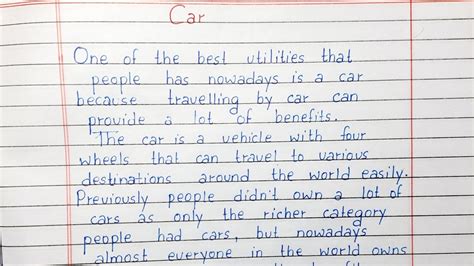 Car
One of the best utilities that
people has nowadays is a car
because travelling by car can
provide a lot of benefits.
The car is a vehicle with four
wheels that can travel to various
destinations around the world easily.
Previously people didn't own a lot of
cars as only the richer category
people had cars, but nowadays
almost everyone in the world owns